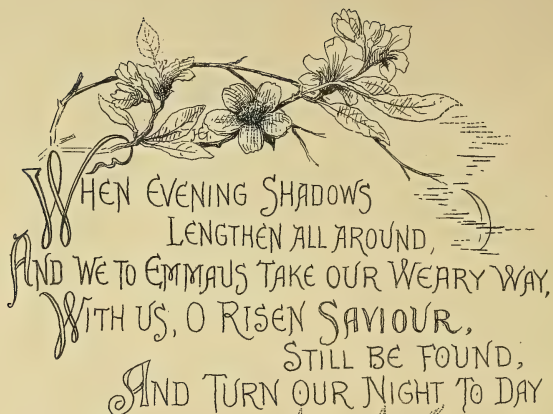 When Evening Shadows
Lengthen all around,
And we to Emmaus take our Weary Way,
With us, O Risen Saviour,
still be found,
And turn our Night to Day